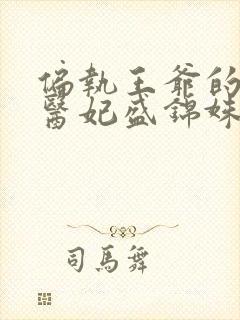 偏執王爺的
醫妃盛錦姝
司馬舞